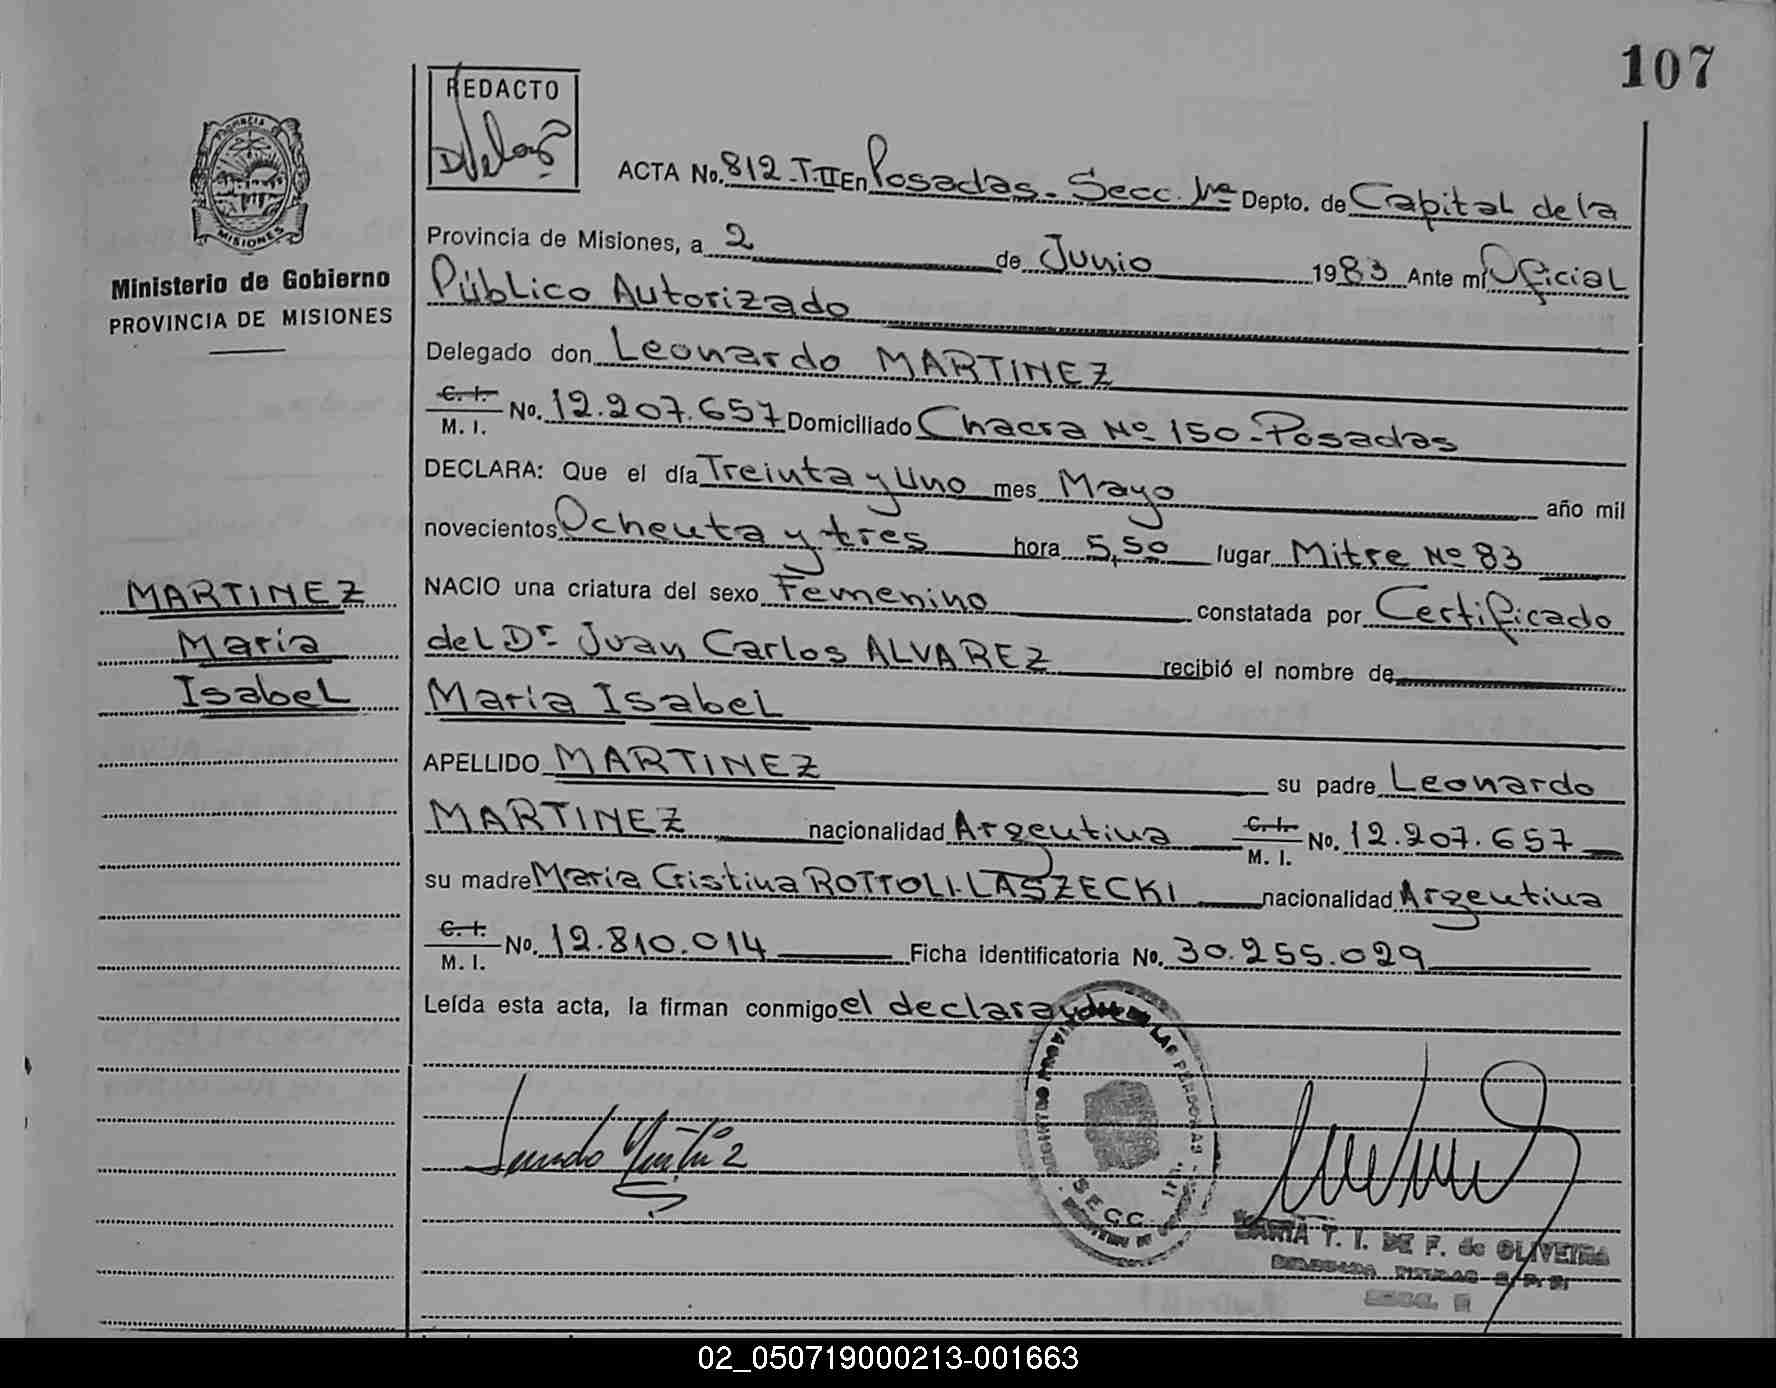 107
REDACTO
ACTA No. 812-T.II En Posadas.- Secc. 1ra Depto. de Capital de la
Provincia de Misiones, a 2 de Junio 1983 Ante mí Oficial
Público Autorizado
Delegado don Leonardo MARTINEZ
C. I. M. I. No. 12.207.657 Domiciliado Chacra Nº 150-Posadas
DECLARA: Que el día Treinta y Uno mes Mayo año mil
novecientos Ochenta y tres hora 5,50 lugar Mitre Nº 83
NACIO una criatura del sexo Femenino constatada por Certificado
del Dr Juan Carlos ALVAREZ recibió el nombre de
Maria Isabel
APELLIDO MARTINEZ su padre Leonardo
MARTINEZ nacionalidad Argentina C. I. M. I. No. 12.207.657
su madre Maria Cristina ROTTOLI-LASZECKI nacionalidad Argentina
C. I. M. I. No. 12.810.014 Ficha identificatoria No. 30.255.029
Leída esta acta, la firman conmigo el declarante
PROVINCIA DE
MISIONES
Ministerio de Gobierno
PROVINCIA DE MISIONES
MARTINEZ
María
Isabel
LAS PERSONAS
SECC. 1ra.
MARIA T. I. DE F. de OLIVEIRA
02_050719000213-001663